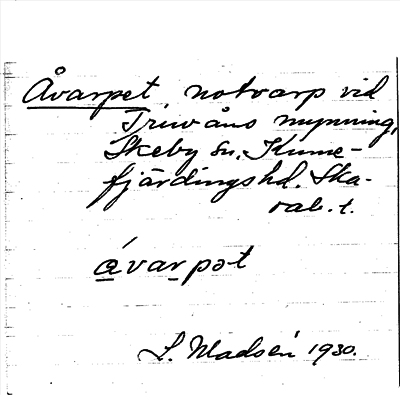 Åvarpet, notvarp vid
Truvåns mynning,
Skeby sn. Kinne-
fjärdingshd. Ska-
rab. t.
ávarpət
S. Madsén 1930.